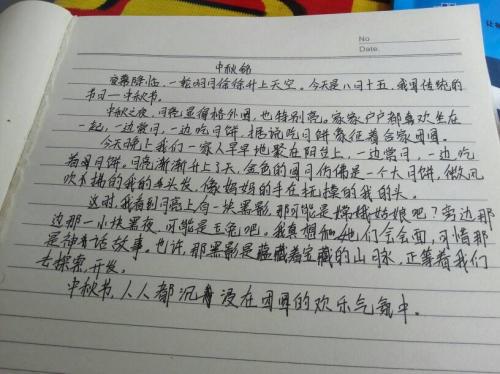 No
Date.
中秋节
夜幕降临,一轮明月徐徐升上天空。今天是八月十五,我国传统的
节日——中秋节。
中秋之夜,月亮显得格外圆,也特别亮。家家户户都喜欢坐在
一起,一边赏月,一边吃月饼,据说吃月饼象征着合家团圆。
今天晚上我们一家人早早地聚在阳台上,一边赏月,一边吃
着圆月饼,月亮渐渐升上了天,金色的圆月仿佛是一个大月饼,微风
吹不断的我的毛头发,像妈妈的手在抚摸的我的头。
这时,我看到月亮上有一块黑影,那可能是嫦娥姑娘吧?旁边那
边那一小块黑夜,可能是玉兔吧,我真想和她们会会面,可惜那
是神话故事。也许,那黑影是蕴藏着宝藏的山脉,正等着我们
去探索,开发。
中秋节,人人都沉浸在团圆的欢乐气氛中。